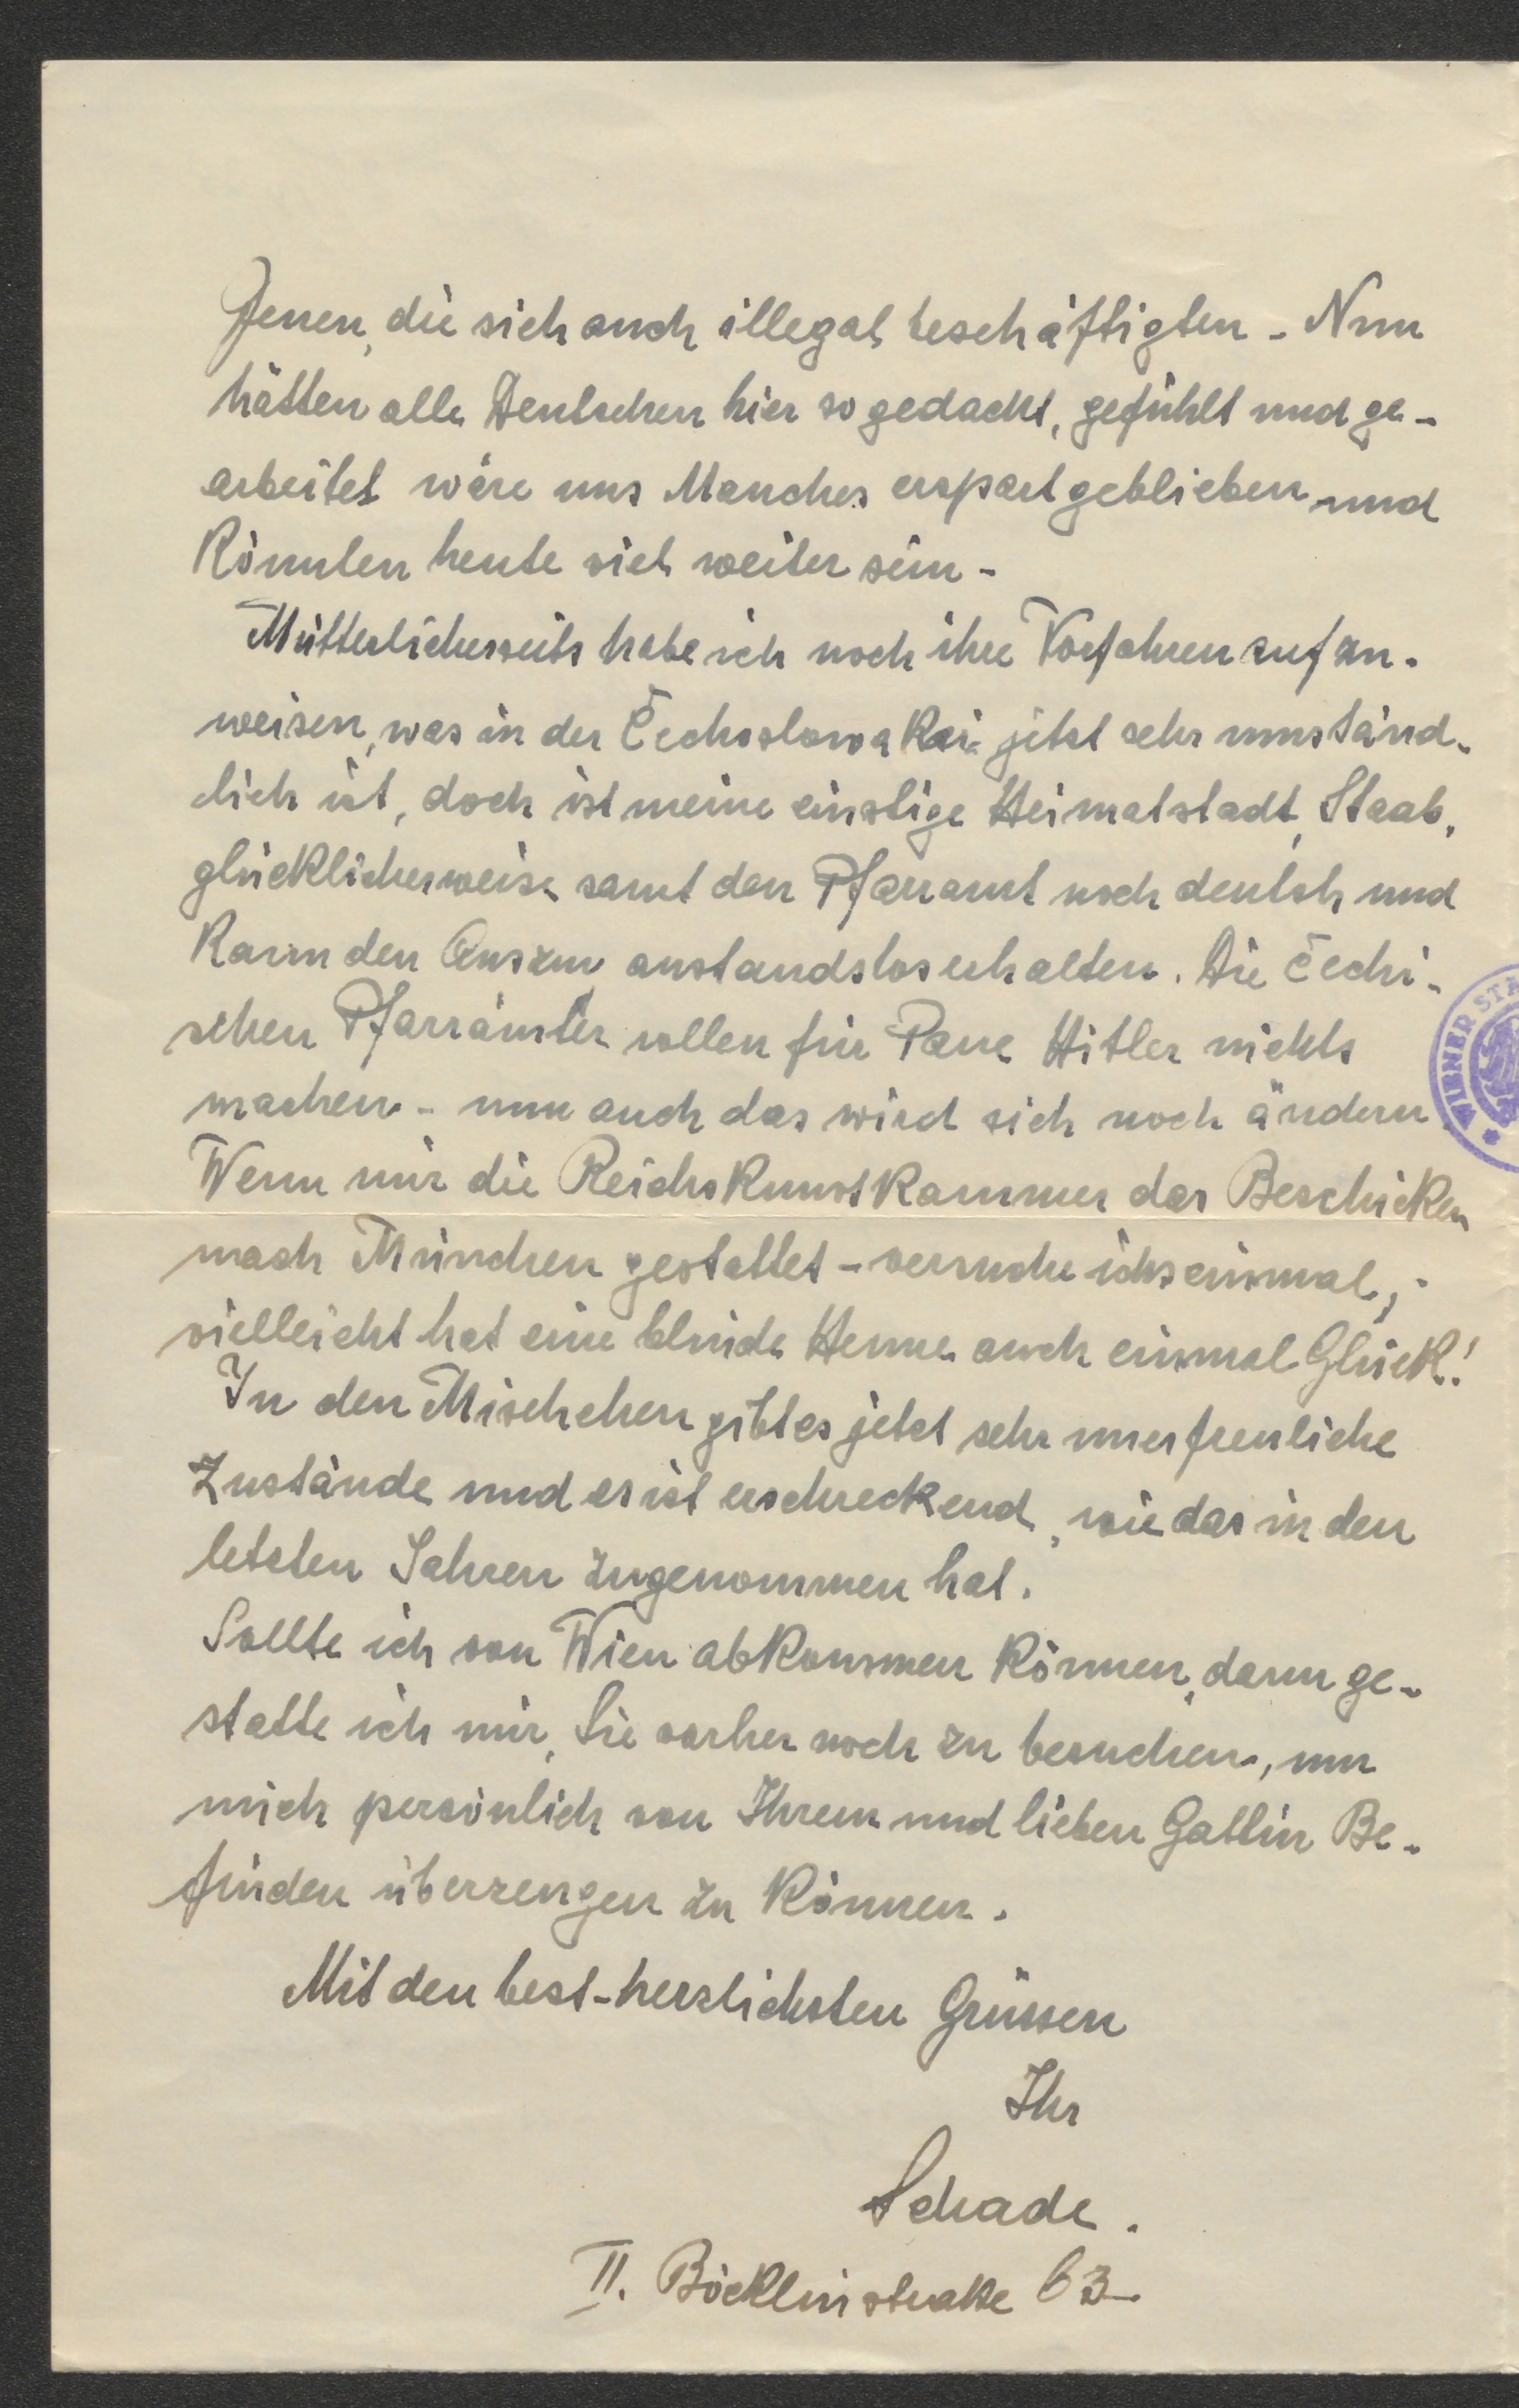 Jenen, die sich auch illegal beschäftigten - Nun
hätten alle Deutschen hier so gedacht, gefühlt und ge-
arbeitet wäre uns Manches erspart geblieben und
könnten heute viel weiter sein -
Mütterlicherseits habe ich noch ihre Vorfahren aufzu-
weisen, was in der Čechoslowakei jetzt sehr umständ-
lich ist, doch ist meine einstige Heimatstadt, Staab,
glücklicherweise samt den Pfarramt noch deutsh und
kann den Auszug anstandslos erhalten. Die čechi-
schen Pfarrämter wollen für Pane Hitler nichts
machen - nun auch das wird sich noch ändern.
Wenn mir die Reichskunstkammer das Beschicken
nach München gestattet - versuche ichs einmal,-
vielleicht hat eine blinde Henne auch einmal Glück!
In den Mischehen gibt es jetzt sehr unerfreuliche
Zustände und es ist erschreckend, wie das in den
letzten Jahren zugenommen hat.
Sollte ich von Wien abkommen können, dann ge-
statte ich mir, Sie vorher noch zu besuchen, um
mich persönlich von Ihrem und lieben Gattin Be-
finden überzeugen zu können.
Mit den best-herzlichsten Grüssen
Ihr
Schade.
II. Böcklinstraße 63
WIENER STA